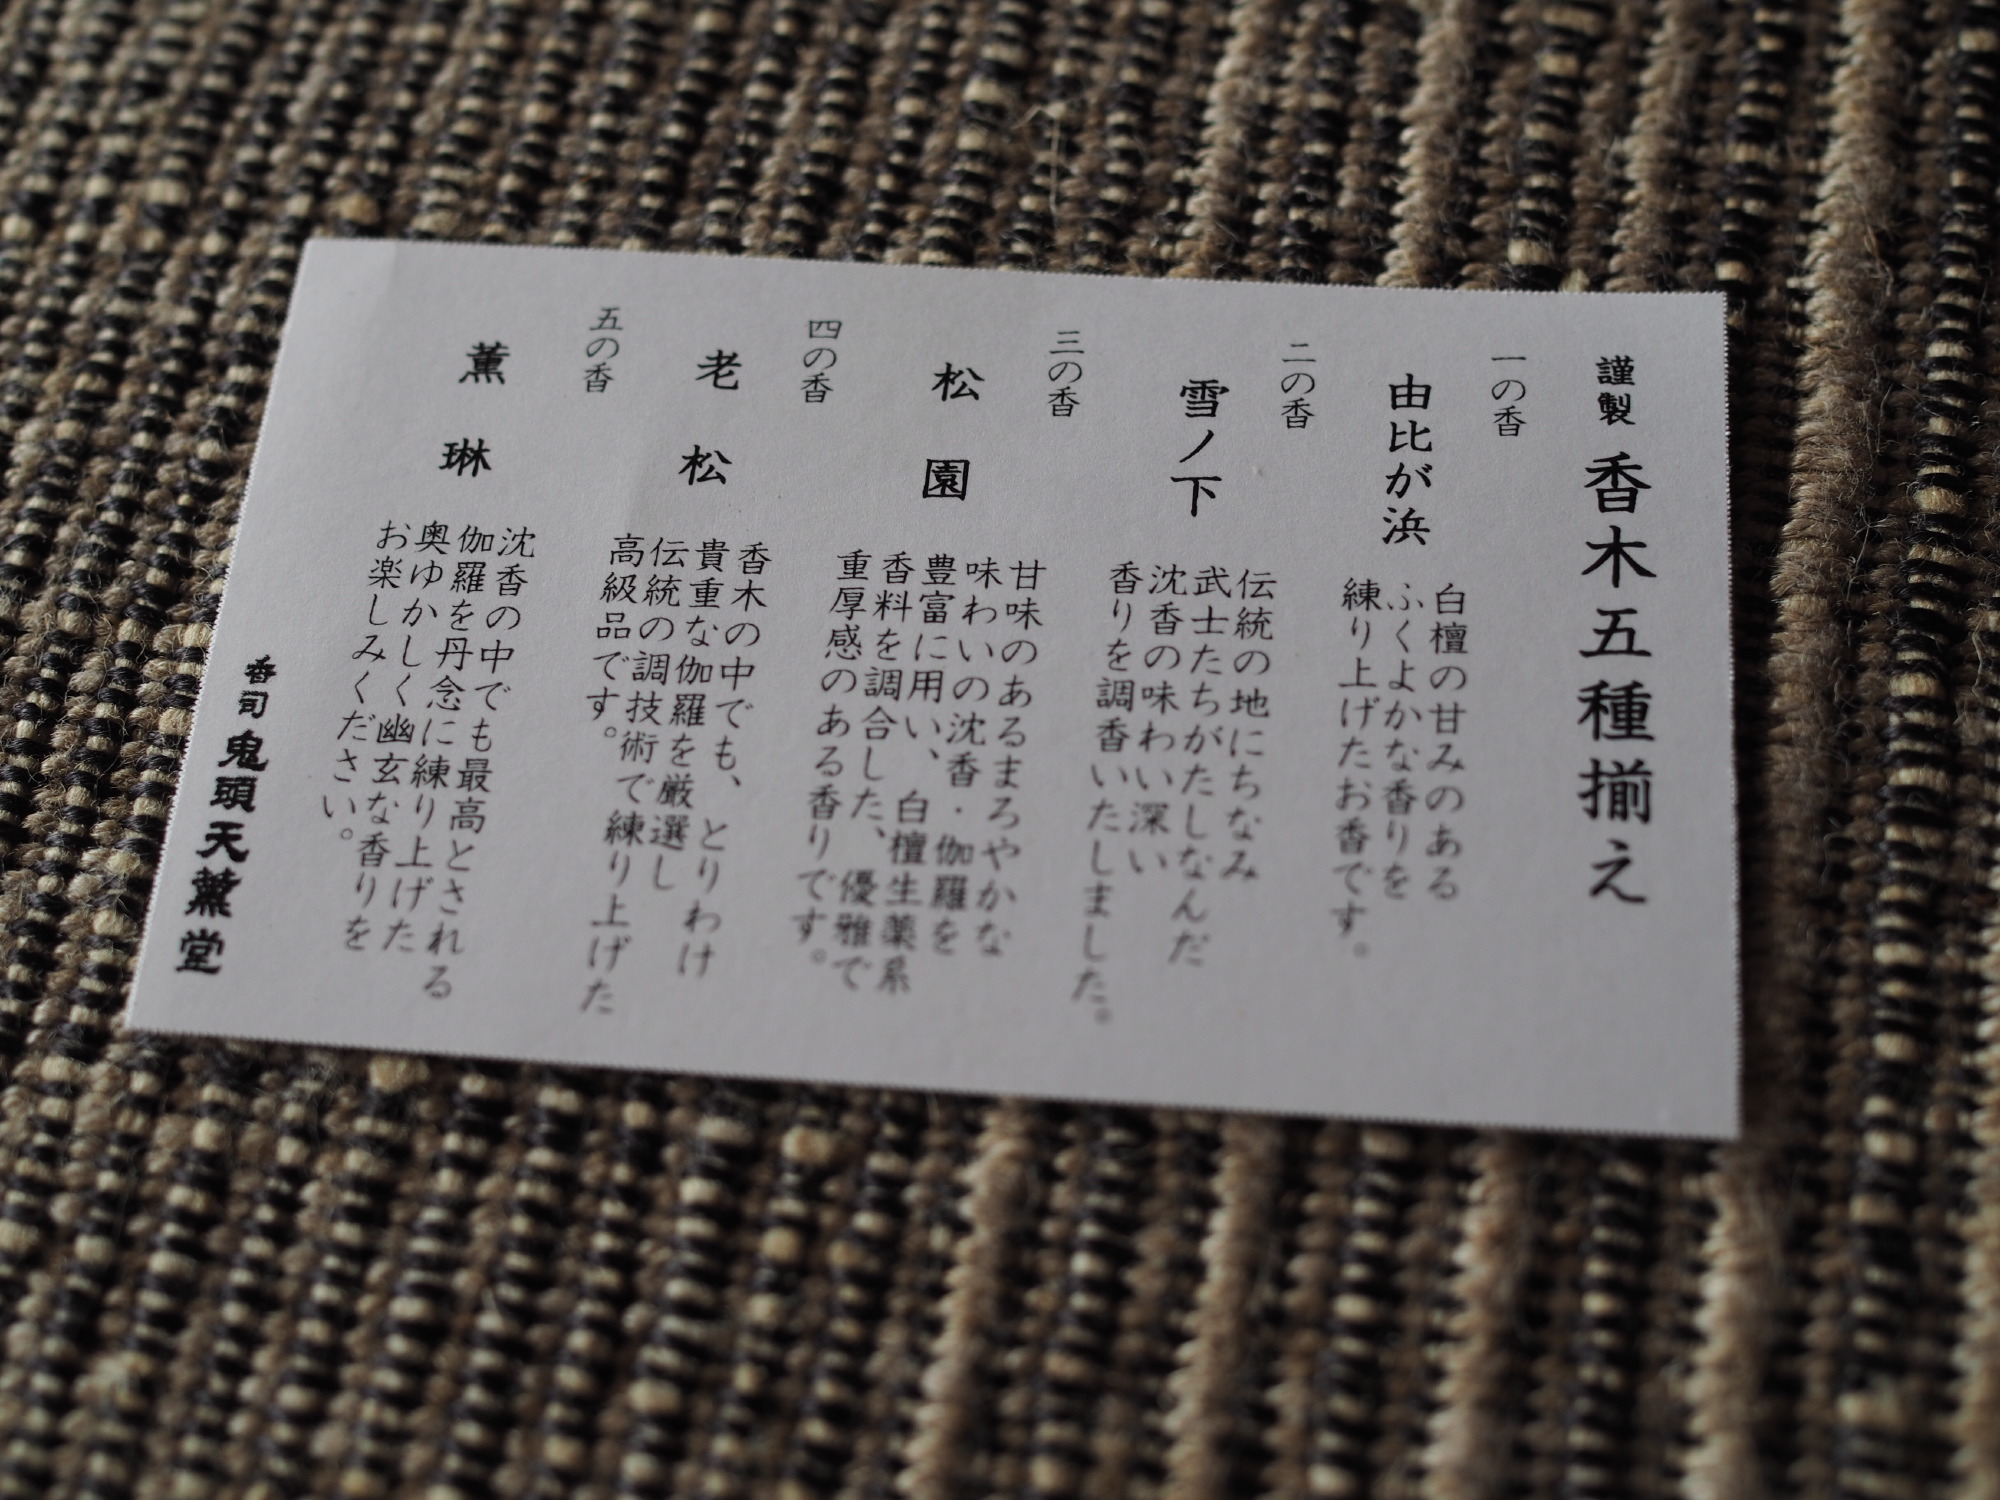 謹製 香木五種揃え
一の香
由比が浜
白檀の甘みのある
ふくよかな香りを
練り上げたお香です。
二の香
雪ノ下
伝統の地にちなみ
武士たちがたしなんだ
沈香の味わい深い
香りを調香いたしました。
三の香
松園
甘味のあるまろやかな
味わいの沈香・伽羅を
豊富に用い、白檀生薬系
香料を調合した、優雅で
重厚感のある香りです。
四の香
老松
香木の中でも、とりわけ
貴重な伽羅を厳選し
伝統の調技術で練り上げた
高級品です。
五の香
薫琳
沈香の中でも最高とされる
伽羅を丹念に練り上げた
奥ゆかしく幽玄な香りを
お楽しみください。
香司 鬼頭天薫堂